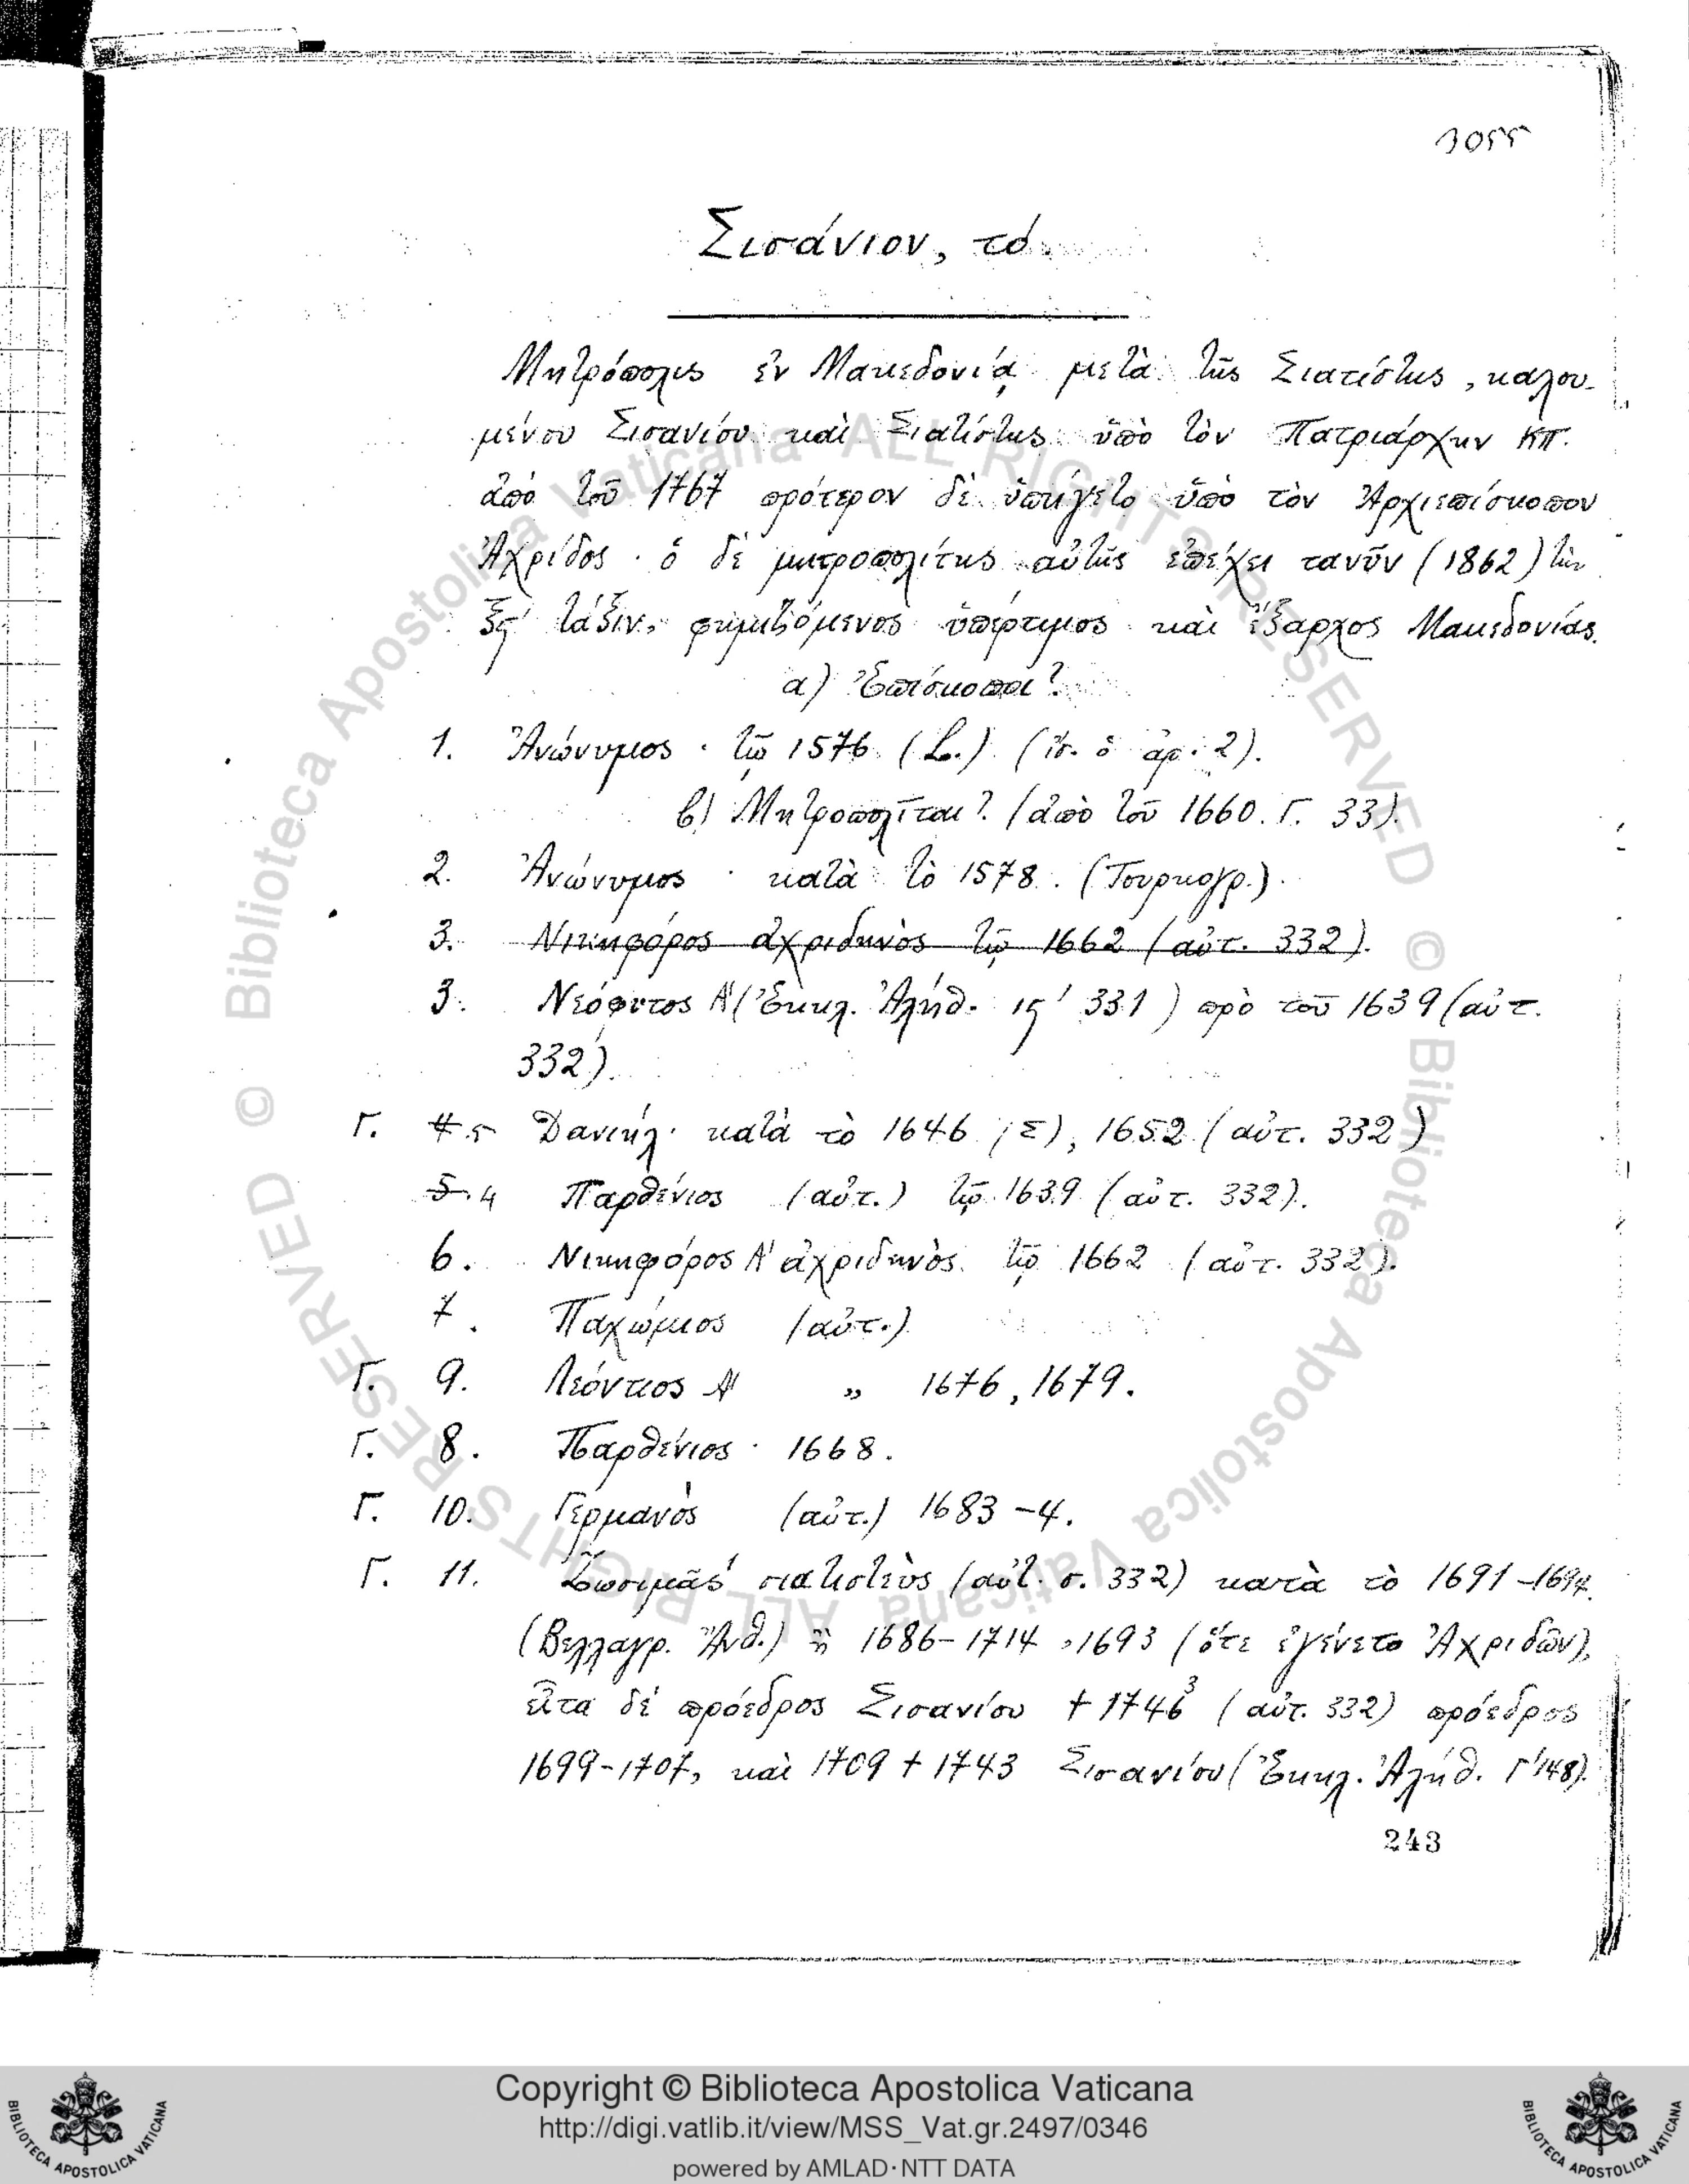 3055
Σισάνιον, τό.
Μητρόπολις ἐν Μακεδονίᾳ μετὰ τῆς Σιατίστης, καλου-
μένου Σισανίου καὶ Σιατίστης ὑπὸ τὸν Πατριάρχην ΚΠ.
ἀπὸ τοῦ 1767 πρότερον δὲ ὑπήγετο ὑπὸ τὸν Ἀρχιεπίσκοπον
Ἀχρίδος · ὁ δὲ μητροπολίτης αὐτῆς ἐπέχει τανῦν (1862) τὴν
ξϛ' τάξιν, φημιζόμενος ὑπέρτιμος καὶ ἔξαρχος Μακεδονίας.
α) Ἐπίσκοποι?
1. Ἀνώνυμος · τῷ 1576 (L.) (ἴσ. ὁ ἀρ. 2).
β) Μητροπολῖται? (ἀπὸ τοῦ 1660. Γ. 33).
2. Ἀνώνυμος · κατὰ τὸ 1578. (Τουρκογρ.).
3. Νικηφόρος ἀχριδηνὸς τῷ 1662 (αὐτ. 332).
3. Νεόφυτος Α' (Ἐκκλ. Ἀλήθ. ιϛ' 331) πρὸ τοῦ 1639 (αὐτ.
332).
Γ. 4. 5 Δανιήλ · κατὰ τὸ 1646 (Σ), 1652 (αὐτ. 332)
5. 4 Παρθένιος (αὐτ.) τῷ 1639 (αὐτ. 332).
6. Νικηφόρος Α' ἀχριδηνὸς τῷ 1662 (αὐτ. 332).
7. Παχώμιος (αὐτ.)
Γ. 9. Λεόντιος Α' „ 1676, 1679.
Γ. 8. Παρθένιος · 1668.
Γ. 10. Γερμανὸς (αὐτ.) 1683-4.
Γ. 11. Ζωσιμᾶς σιατιστεὺς (αὐτ. σ. 332) κατὰ τὸ 1691-1694.
(Βελλαγρ. Ἀνθ.) ἢ 1686-1714, 1693 (ὅτε ἐγένετο Ἀχριδῶν),
εἶτα δὲ πρόεδρος Σισανίου † 1746 3 (αὐτ. 332) πρόεδρος
1699-1707, καὶ 1709 † 1743 Σισανίου (Ἐκκλ. Ἀλήθ. Γ' 148).
243
Copyright © Biblioteca Apostolica Vaticana
http://digi.vatlib.it/view/MSS_Vat.gr.2497/0346
powered by AMLAD·NTT DATA
BIBLIOTECA APOSTOLICA VATICANA
BIBLIOTECA APOSTOLICA VATICANA
© Biblioteca Apostolica Vaticana ALL RIGHTS RESERVED © Biblioteca Apostolica Vaticana ALL RIGHTS RESERVED